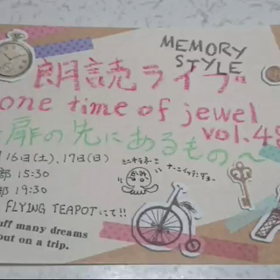 MEMORY STYLE
朗読ライブ
one time of jewel
vol.4
扉の先にあるもの～
16日(土)、17日(日)
部 15:30
部 19:30
FLYING TEAPOTにて!!
uff many dreams
out on a trip.